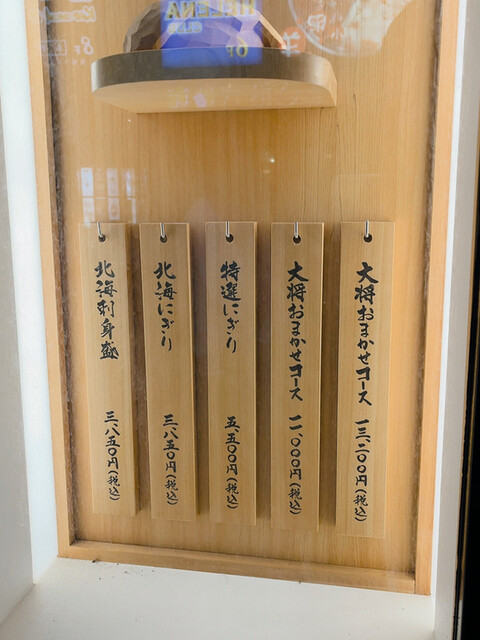 HELENA
大将おまかせコース 一三、二〇〇円(税込)
大将おまかせコース 一一、〇〇〇円(税込)
特選にぎり 五、五〇〇円(税込)
北海にぎり 三、八五〇円(税込)
北海刺身盛 三、八五〇円(税込)